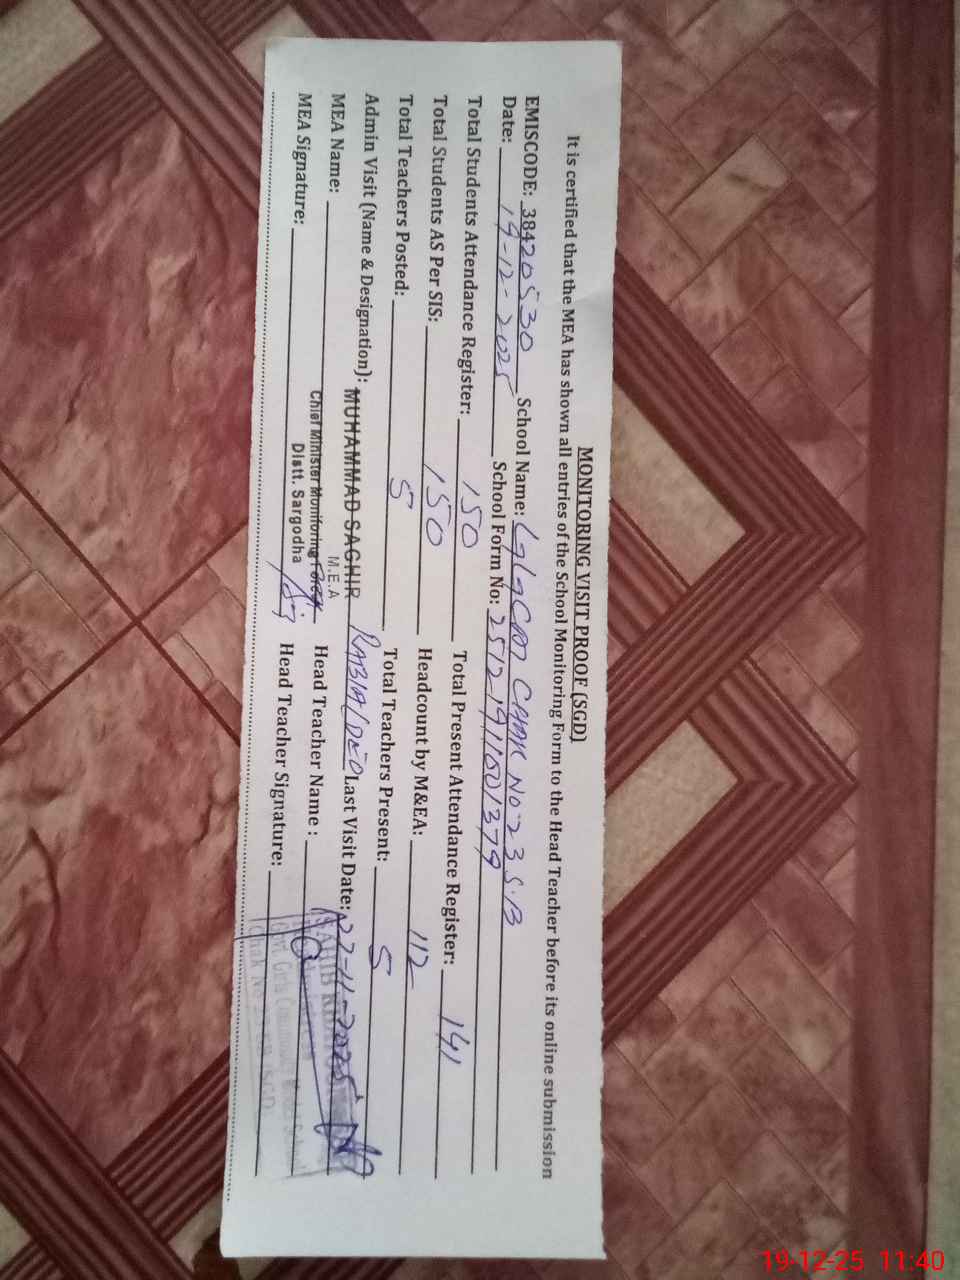 MONITORING VISIT PROOF (SGD)
It is certified that the MEA has shown all entries of the School Monitoring Form to the Head Teacher before its online submission
EMISCODE: 38420530 School Name: GGCMS CHAK NO 23 S.B
Date: 19-12-2025 School Form No: 2512-191101379
Total Students Attendance Register: 150 Total Present Attendance Register: 141
Total Students AS Per SIS: 150 Headcount by M&EA: 112
Total Teachers Posted: 5 Total Teachers Present: 5
Admin Visit (Name & Designation): RABIA/DEO Last Visit Date: 27-11-2025
MUHAMMAD SAGHIR
M.E.A
MEA Name: Chief Minister Monitoring Force Head Teacher Name :
Distt. Sargodha
MEA Signature: Head Teacher Signature:
19-12-25 11:40